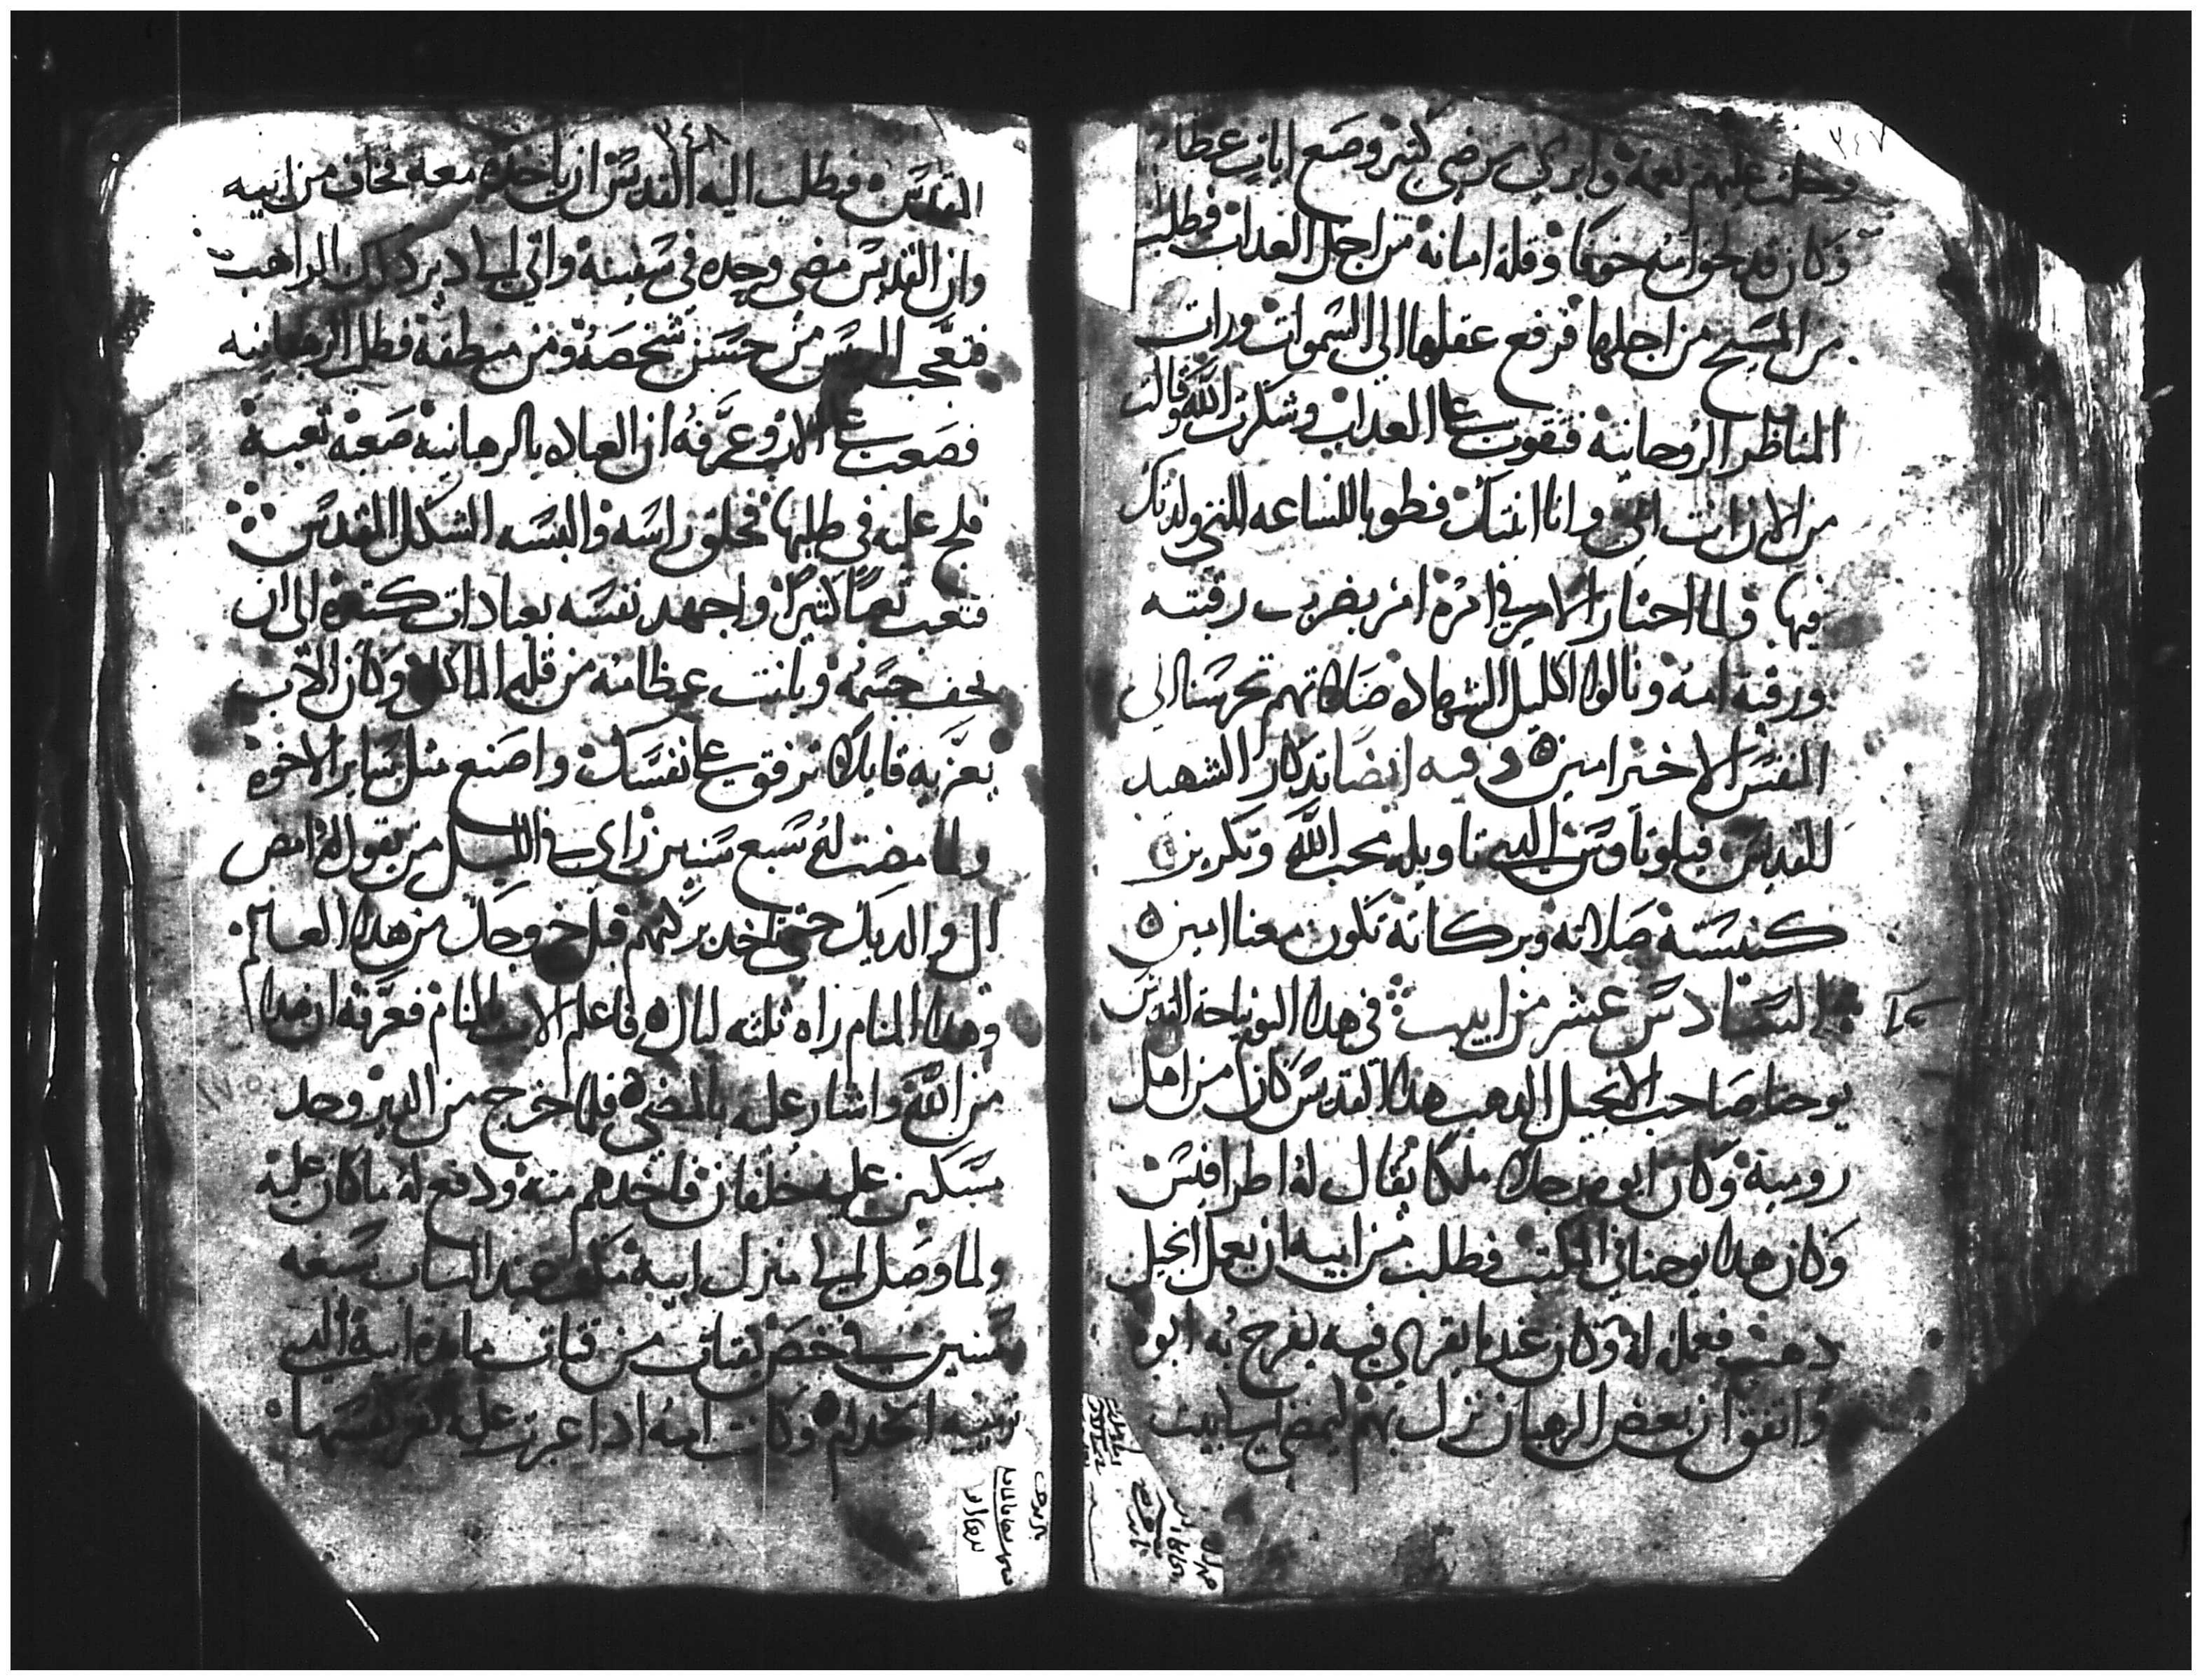 ٣٤٧
وحلت عليهم نعمة وابرى مرضى كثير وصنع ايات عظا
وكان قد لحق امه خوفا وقلة امانة من اجل العداب فطلب
من المسيح من اجلها فرفع عقلها الى السموات ورات
المناظر الروحانية فتقوت على العداب وشكرت الله وقالت
من الان انت ابي وانا ابنتك فطوبا للساعه التي ولدتك
فيها ولما احتار الامير في امره امر بضرب رقبته
ورقبة امه ونالوا اكليل الشهاده صلاتهم تحرسنا الى
النفس الاخير امين وفيه ايضا تدكار الشهيد
القديس فيلوتاوس الدي تاويله محب الله وتكريز
كنيسته صلاته وبركاته تكون معنا امين
السادس عشر من ابيب في هدا اليوم نياحة القديس
يوحنا صاحب الانجيل الدهب هدا القديس كان من اهل
رومية وكان ابوه رجلا ملكا يقال له اطرافيس
وكان هدا يوحنا في المكتب فطلب من ابيه ان يعمل انجيل
دهب فعمل له وكان غدا يقرى فيه يفرح به ابوه
واتفق ان بعض الرهبان نزل بهم ليمضي الى بيت
٣٤٨
المقدس فطلب اليه القديس ان ياخده معه فخاف من ابيه
وان القديس مضى وحده في سفينة واتى الى دير دلك الراهب
فتعجب الريس من حسن شخصه ومن منطقه فطلب الرهبانيه
فصعب على الاب وعرفه ان العباده بالرهبانية صعبة تعبة
فلج عليه في طلبها فحلق راسه والبسه الشكل المقدس
فتعب تعبا كثيرا واجهد نفسه بعبادات كثيره الى ان
نحف جسمه وبانت عظامه من قلة الماكل وكان الاب
يعزيه قايلا ترفق على نفسك واصنع مثل ساير الاخوه
ولما مضت له سبع سنين راى في الليل من يقول له امض
الى والديك حتى تاخد بركتهم قبل خروجك من هدا العالم
وهدا المنام راه ثلثه ليال فاعلم الاب بالمنام فعرفه ان هدا
من الله واشار عليه بالمضي فلما خرج من الدير وجد
مسكين عليه خلقان فاخدهم منه ودفع له ما كان عليه
ولما وصل الى منزل ابيه مكث عند الباب سبعه
سنين في خص يقتات من فتات مائدة ابيه الدي
ترميه الخدام وكانت امه ادا عبرت عليه تقرف نفسها